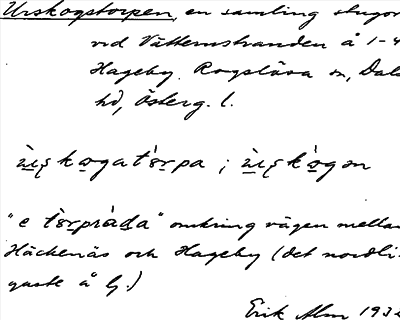 Urskogstorpen, en samling stugor
vid Vätternstranden å 1-4
Hageby. Rogslösa sn, Dals
hd, Österg. l.
"e tårpråda" omkring vägen mellan
Häckenäs och Hageby (det nordli-
gaste å G.)
Erik Alm 1932